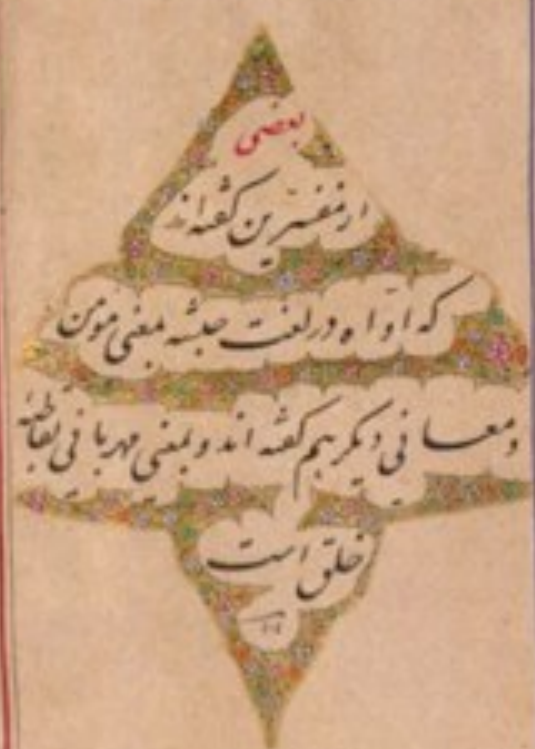 بعضی
از مفسّرین گفته‌اند
که اوّاه در لغت حبشه بمعنی مومن
و معانی دیگر هم گفته اند و بمعنی مهربانی
خلق است